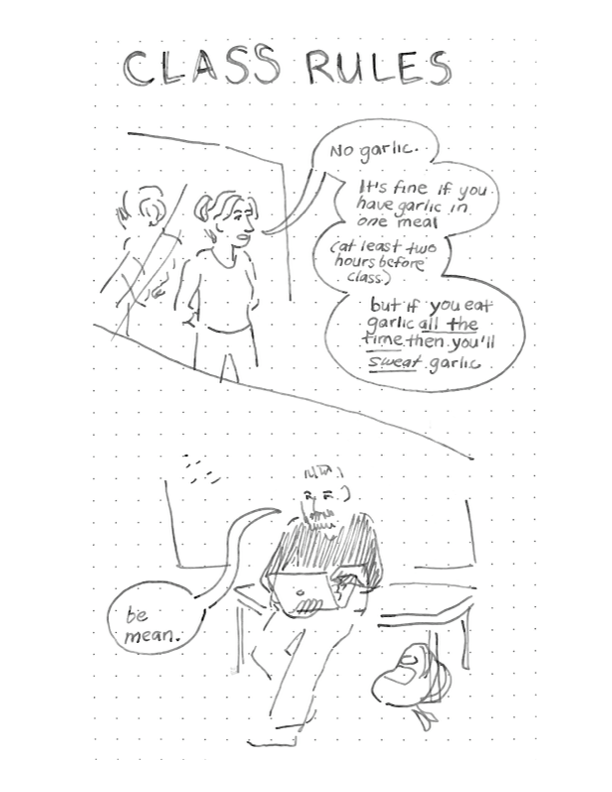 CLASS RULES
No garlic.
It's fine if you
have garlic in
one meal
(at least two
hours before
class)
but if you eat
garlic all the
time then you'll
sweat garlic.
be
mean.